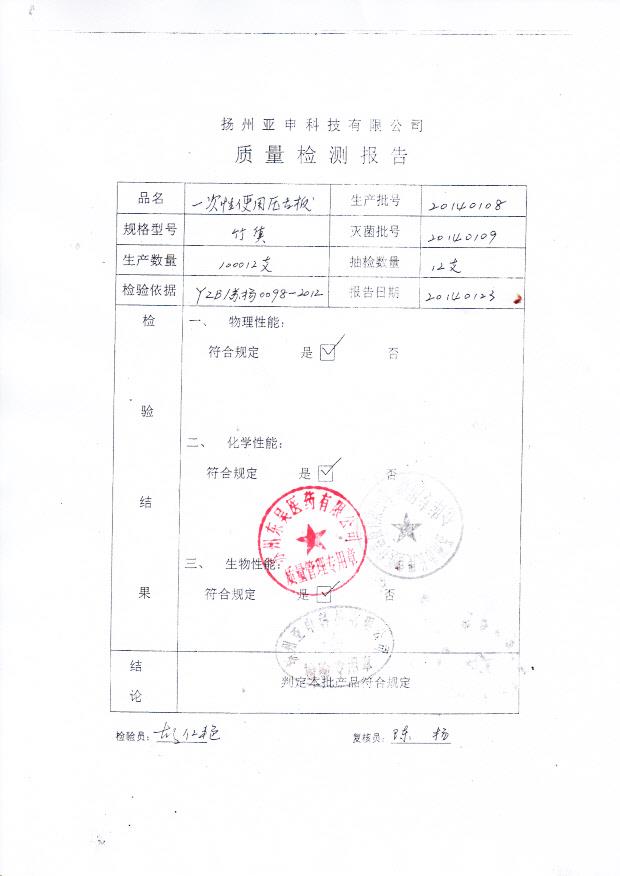 扬州亚申科技有限公司
质量检测报告
品名 一次性使用压舌板 生产批号 20140108
规格型号 竹 灭菌批号 20140109
生产数量 100012支 抽检数量 12支
检验依据 YZB/苏扬0098-2012 报告日期 20140123
检验结果
一、 物理性能:
符合规定 是 否
二、 化学性能:
符合规定 是 否
州东吴医药有限公司
质量管理专用章
三、 生物性能:
符合规定 是 否
结论 判定本批产品符合规定
检验员: 复核员: 陈 杨